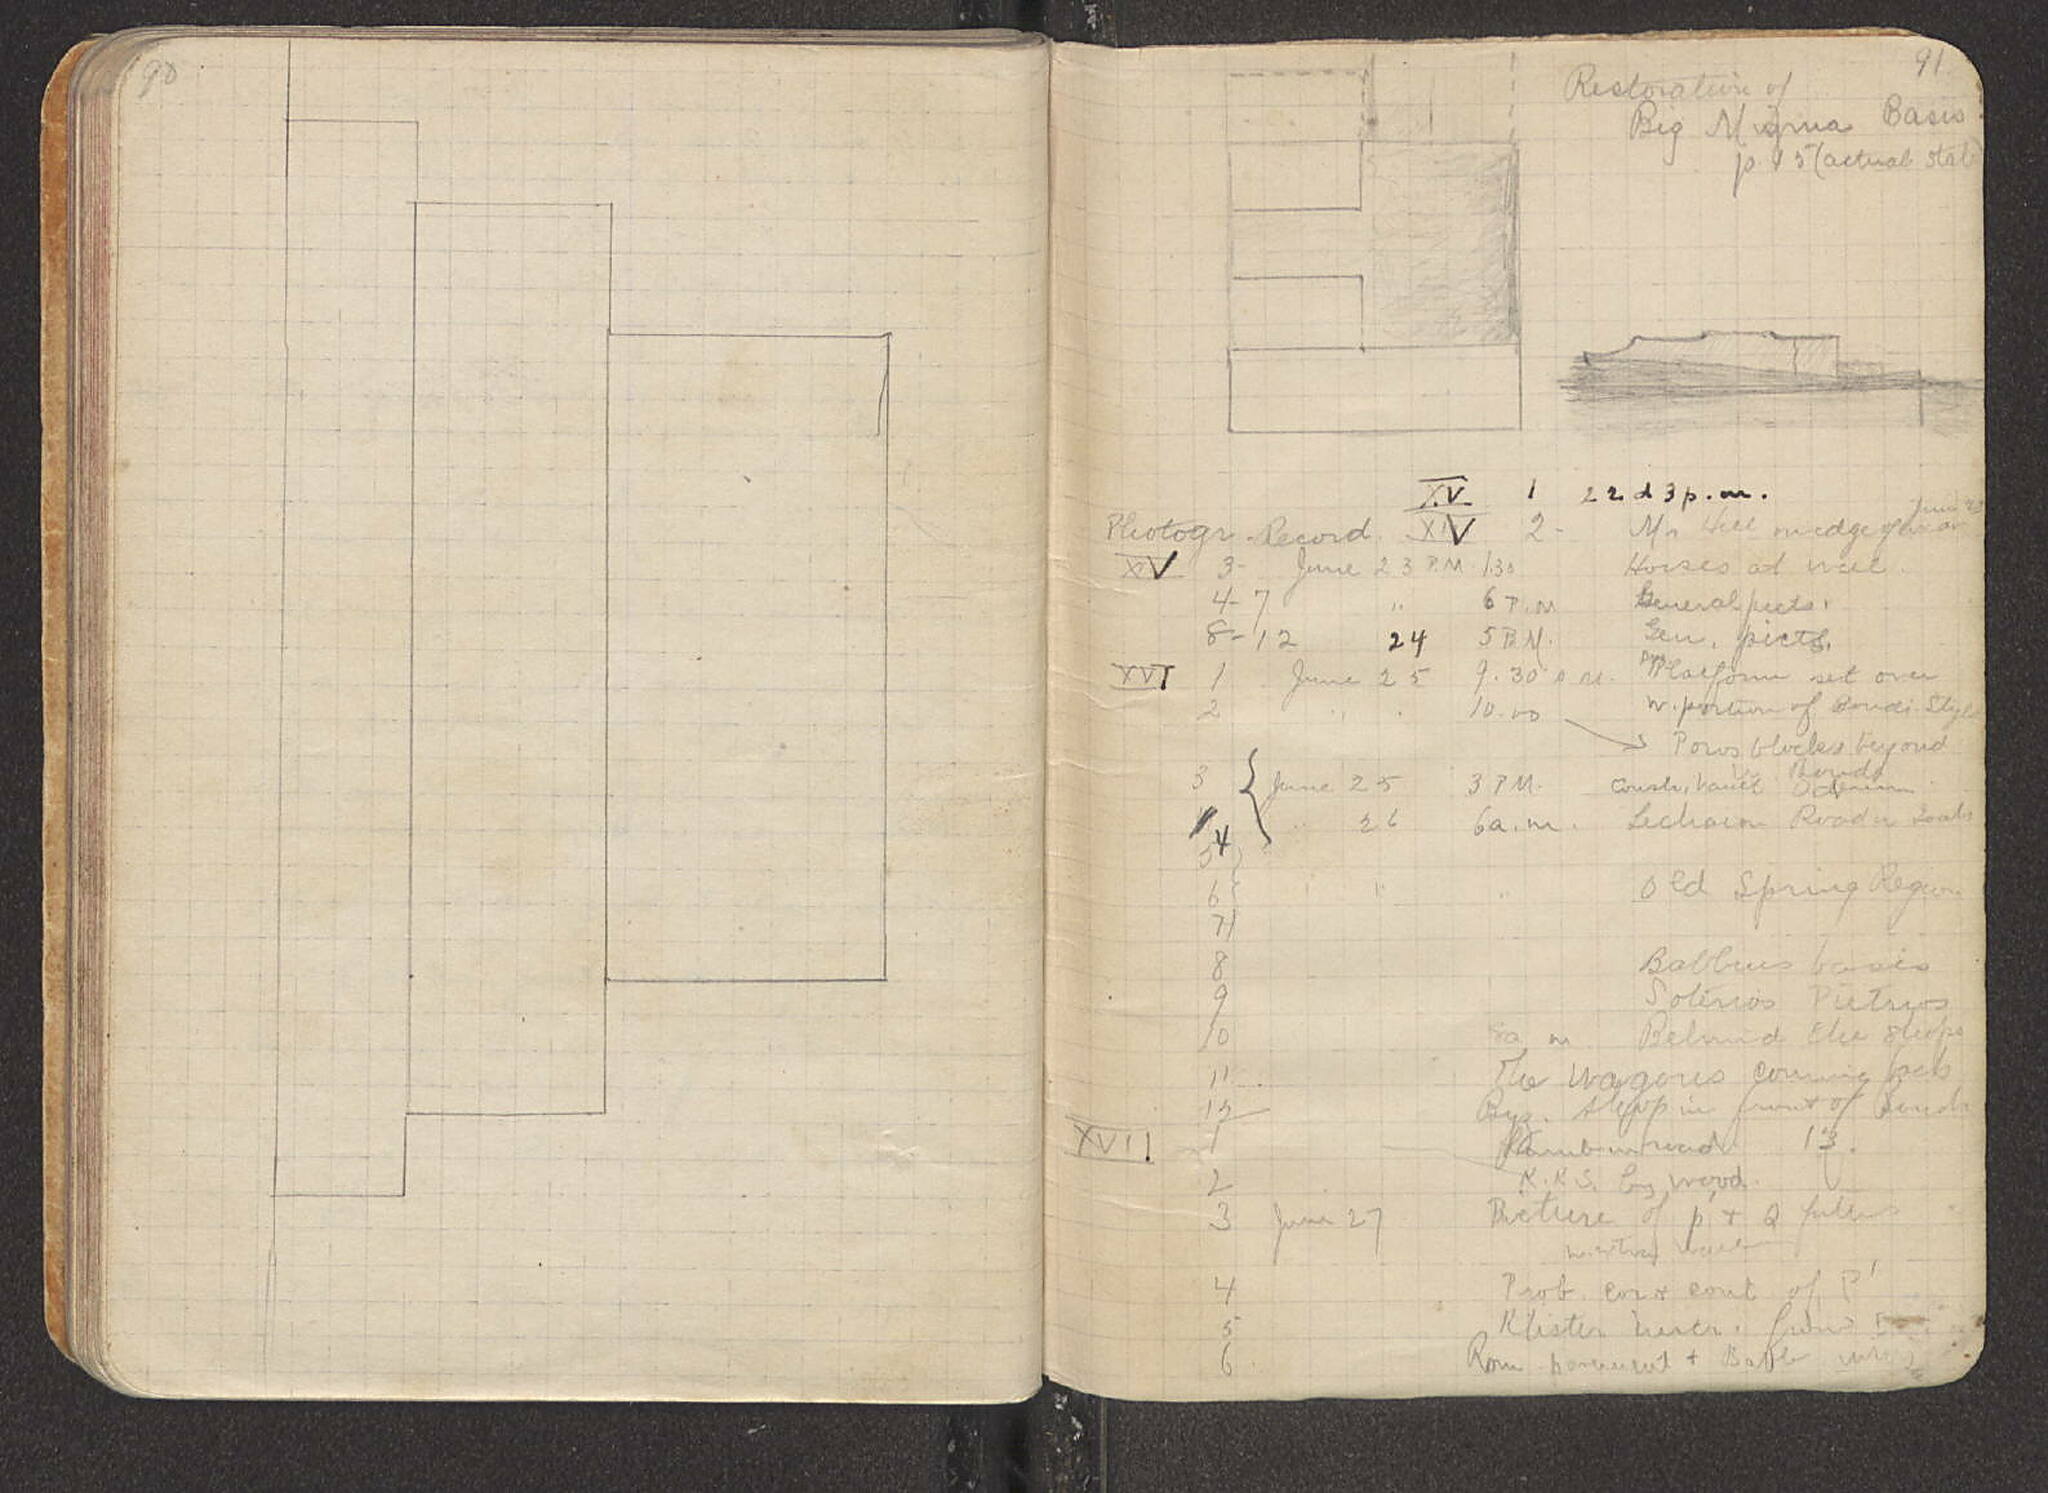 90
91
Restoration of
Big Migma Basis
p. 15 (actual state
XV 1 22d 3 p.m.
June 23
Photogr. Record. XIV 2- Mr Hill on edge of
XV 3- June 23 P.M. 1.30 Horses at well.
4-7 " 6 P.M General picts.
8-12 24 5 P.M. Gen. picts.
XVI 1 June 25 9.30 a.m. Platform set over
2 " " 10.00 w. portion of Boudi Style
Poros blocks beyond
Boudi
3 June 25 3 P.M. constr. vault Odeum
4 " 26 6 a.m. Lechaion Road
5
6 " " " Old Spring Region
7
8 Babbius basis
9 Soterios Pietrios
10 8 a.m. Behind the shops
11 The wagons coming back
12 Byz. shop in front of Boudi
XVII 1 13.
2 K.K.S. by wood.
3 June 27 Picture of p' + Q
4 Prob. cont of P'
5 from
6 Rom pavement + Babb